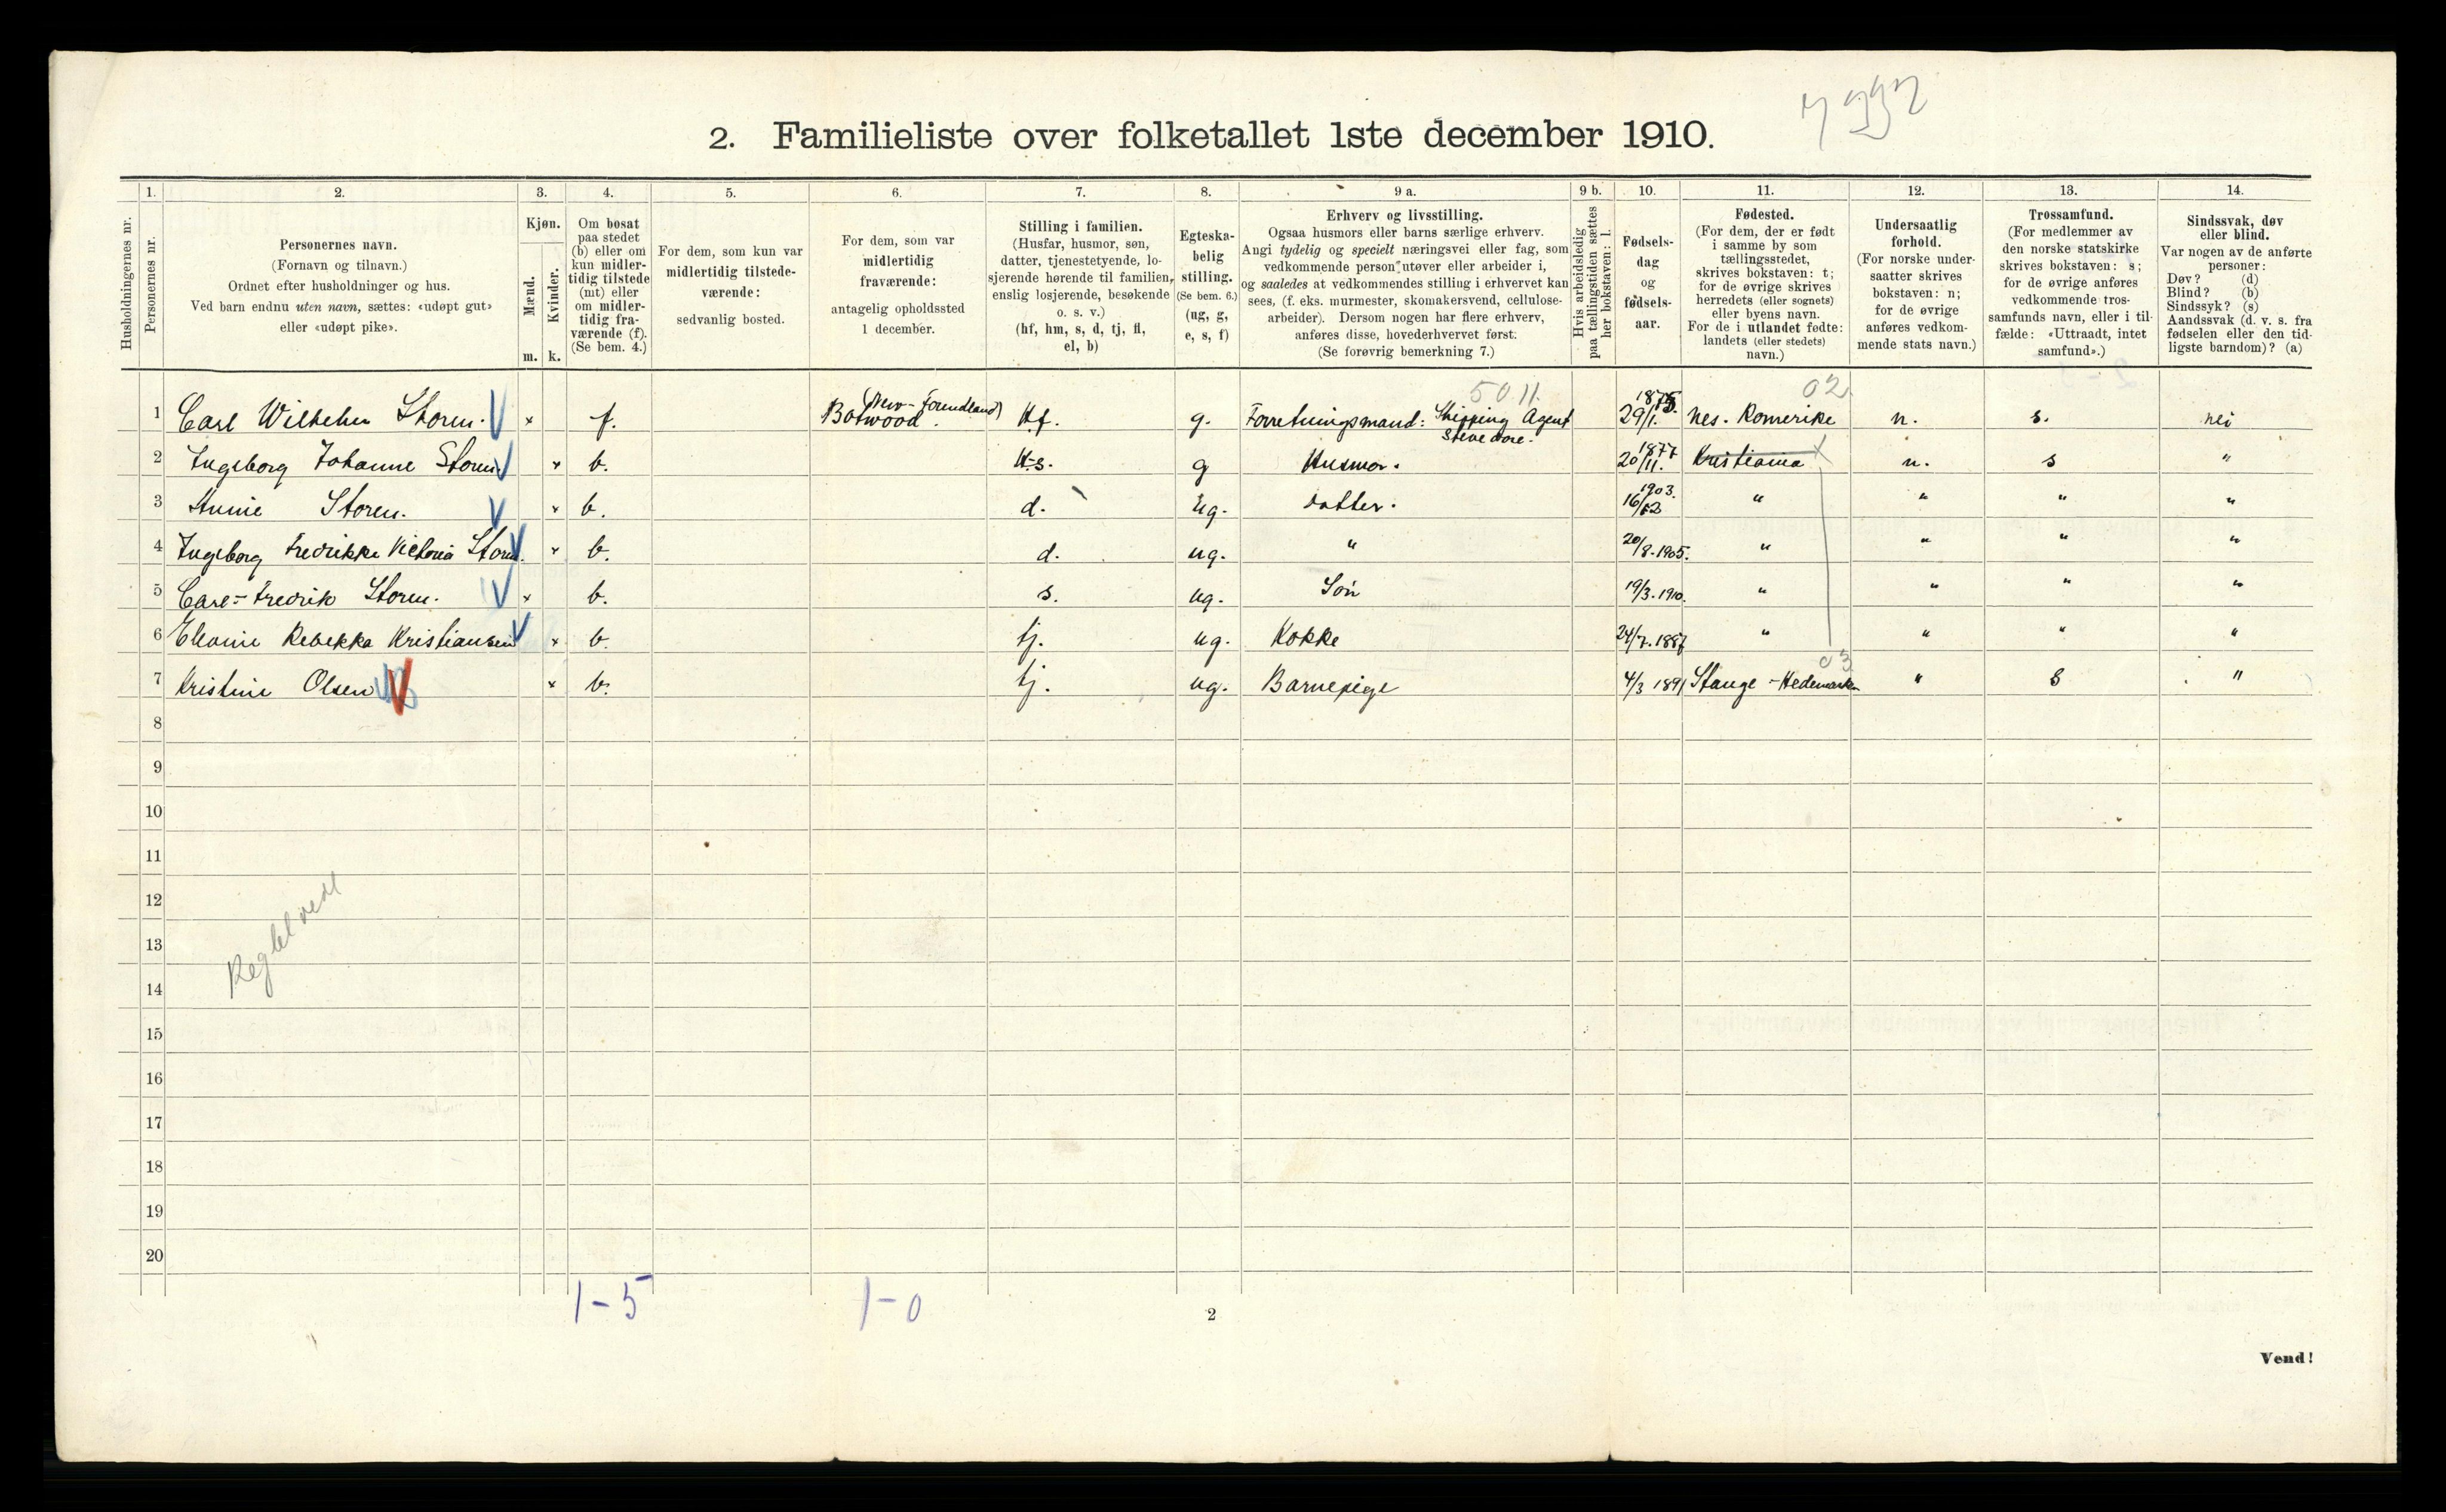 7997
2. Familieliste over folketallet 1ste december 1910.
Husholdningernes nr.
1. Personernes nr.
2. Personernes navn. (Fornavn og tilnavn.) Ordnet efter husholdninger og hus. Ved barn endnu uten navn, sættes: «udøpt gut» eller «udøpt pike».
3. Kjøn. Mænd. m. Kvinder. k.
4. Om bosat paa stedet (b) eller om kun midlertidig tilstede (mt) eller om midlertidig fraværende (f). (Se bem. 4.)
5. For dem, som kun var midlertidig tilstedeværende: sedvanlig bosted.
6. For dem, som var midlertidig fraværende: antagelig opholdssted 1 december.
7. Stilling i familien. (Husfar, husmor, søn, datter, tjenestetyende, losjerende hørende til familien, enslig losjerende, besøkende o. s. v.) (hf, hm, s, d, tj, fl, el, b)
8. Egteskabelig stilling. (Se bem. 6.) (ug, g, e, s, f)
9 a. Erhverv og livsstilling. Ogsaa husmors eller barns særlige erhverv. Angi tydelig og specielt næringsvei eller fag, som vedkommende person utøver eller arbeider i, og saaledes at vedkommendes stilling i erhvervet kan sees, (f. eks. murmester, skomakersvend, cellulosearbeider). Dersom nogen har flere erhverv, anføres disse, hovederhvervet først. (Se forøvrig bemerkning 7.)
9 b. Hvis arbeidsledig paa tællingstiden sættes her bokstaven: l.
10. Fødselsdag og fødselsaar.
11. Fødested. (For dem, der er født i samme by som tællingsstedet, skrives bokstaven: t; for de øvrige skrives herredets (eller sognets) eller byens navn. For de i utlandet fødte: landets (eller stedets) navn.)
12. Undersaatlig forhold. (For norske undersaatter skrives bokstaven: n; for de øvrige anføres vedkommende stats navn.)
13. Trossamfund. (For medlemmer av den norske statskirke skrives bokstaven: s; for de øvrige anføres vedkommende trossamfunds navn, eller i tilfælde: «Uttraadt, intet samfund».)
14. Sindssvak, døv eller blind. Var nogen av de anførte personer: Døv? (d) Blind? (b) Sindssyk? (s) Aandssvak (d. v. s. fra fødselen eller den tidligste barndom)? (a)
5011. 02
1 Carl Wilhelm Storen. x f. Botwood (New-Foundland). Hf. g. Forretningsmand: Shipping Agent Stevedore. 29/1. 1875 Nes. Romerike n. s. nei
2 Ingeborg Johanne Storen x b. H-s. g Husmor. 20/11. 1877 Kristiania n. s "
3 Annie Storen. x b. d. ug. datter. 16/12 1903. " " " "
4 Ingeborg Fredrikke Victoria Storen. x b. d. ug. " 20/8. 1905. " " " "
5 Carl-Fredrik Storen. x b. s. ug. Søn 19/3. 1910. " " " "
6 Eleonie Rebekka Kristiansen x b. tj. ug. Kokke 24/7. 1887 " " " "
03
7 Kristine Olsen x b. tj. ug. Barnepige 4/3 1891 Stange - Hedemarken " s "
8
9
10
11
12
13
14
15
16
17
18
19
20
1-5
1-0
2
Vend!